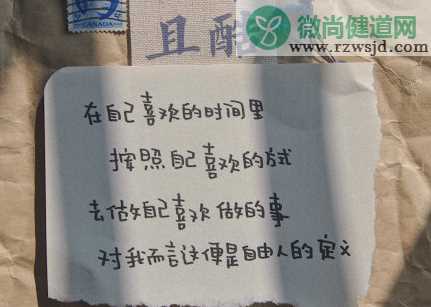 CANADA
且酷
微尚健道网
www.rzwsjd.com
在自己喜欢的时间里
按照自己喜欢的方式
去做自己喜欢做的事
对我而言这便是自由人的定义